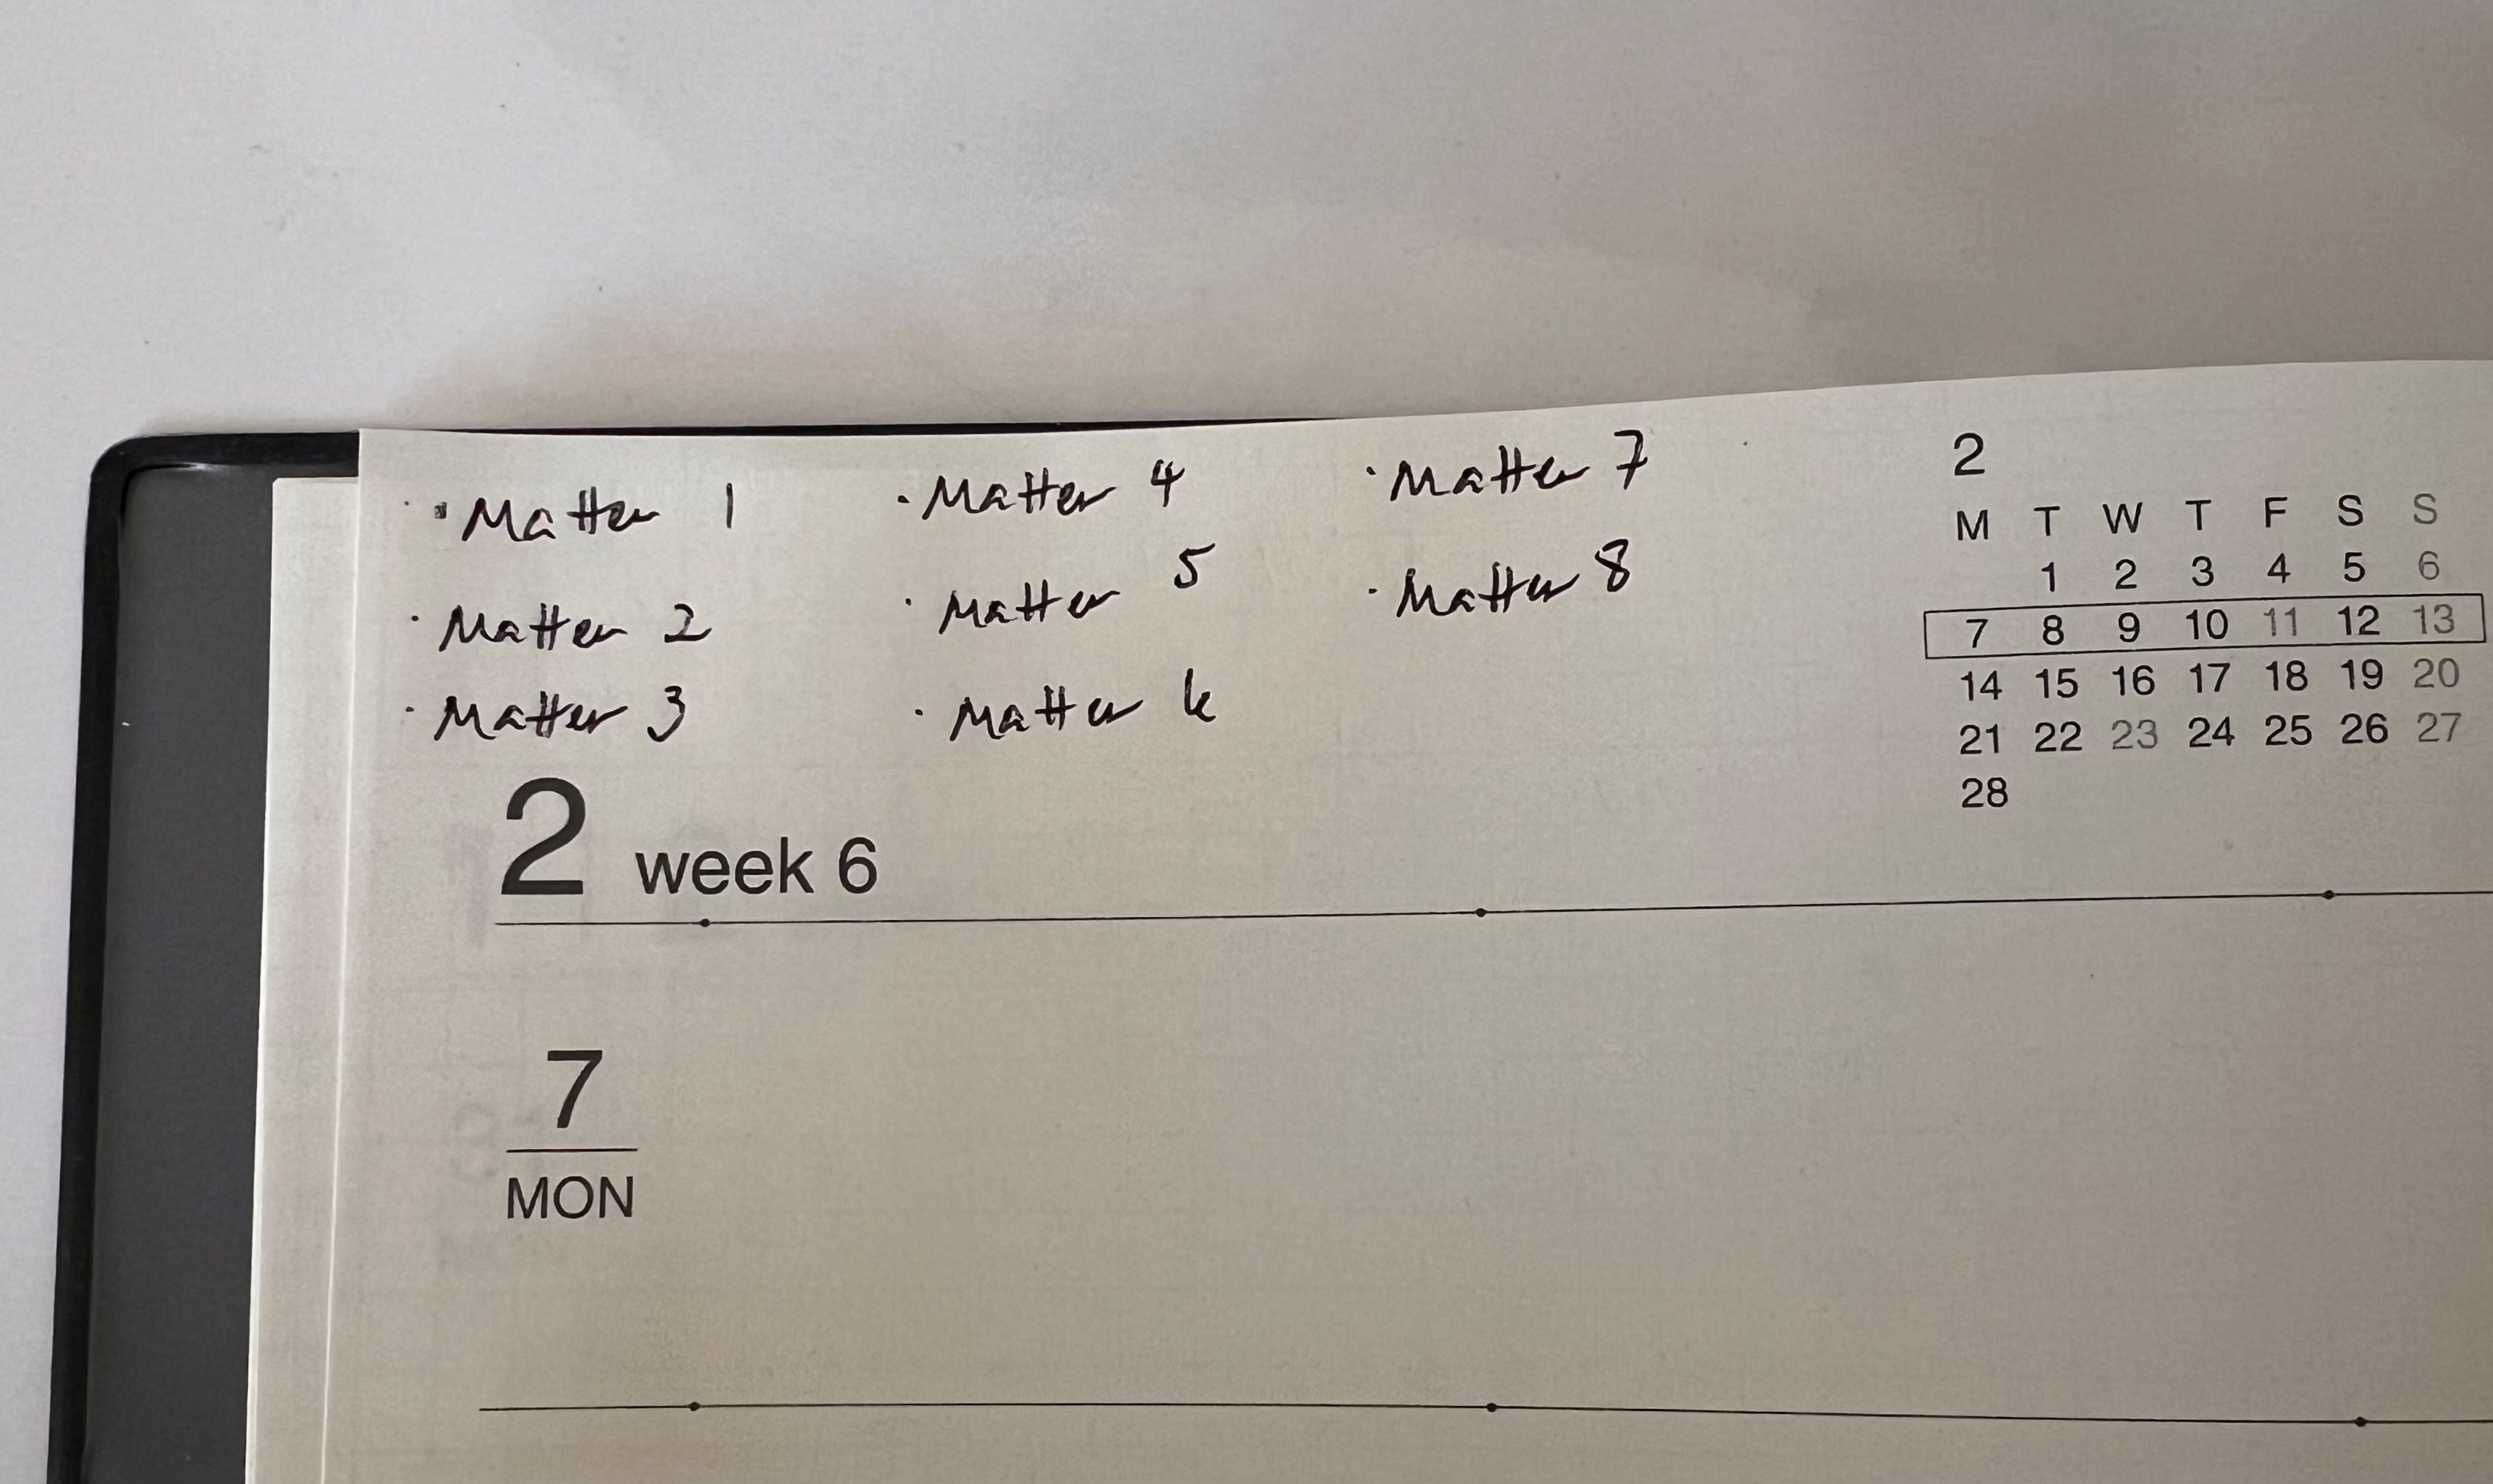 · Matter 1
· Matter 2
· Matter 3
· Matter 4
· Matter 5
· Matter 6
· Matter 7
· Matter 8
2
M T W T F S S
1 2 3 4 5 6
7 8 9 10 11 12 13
14 15 16 17 18 19 20
21 22 23 24 25 26 27
28
2 week 6
7
MON